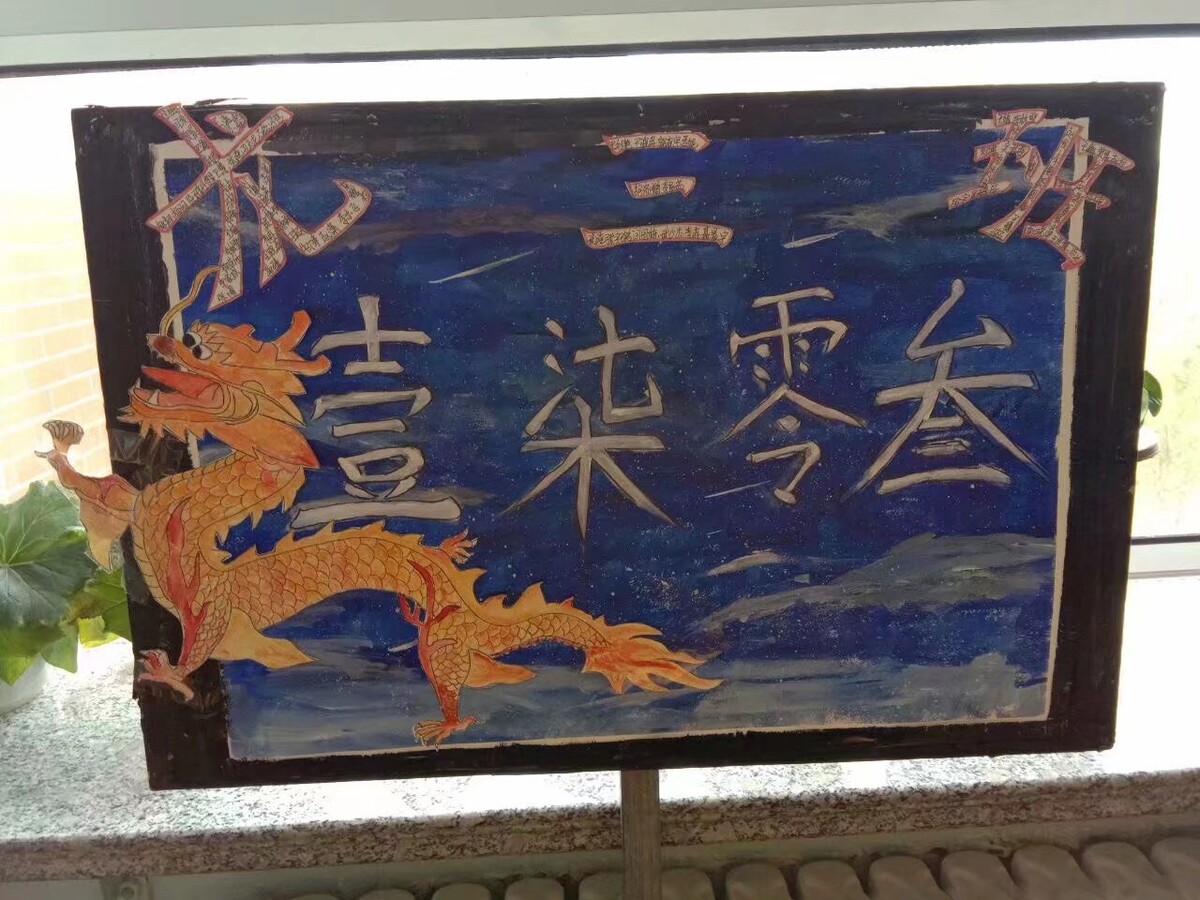 龙三班
壹柒零叁